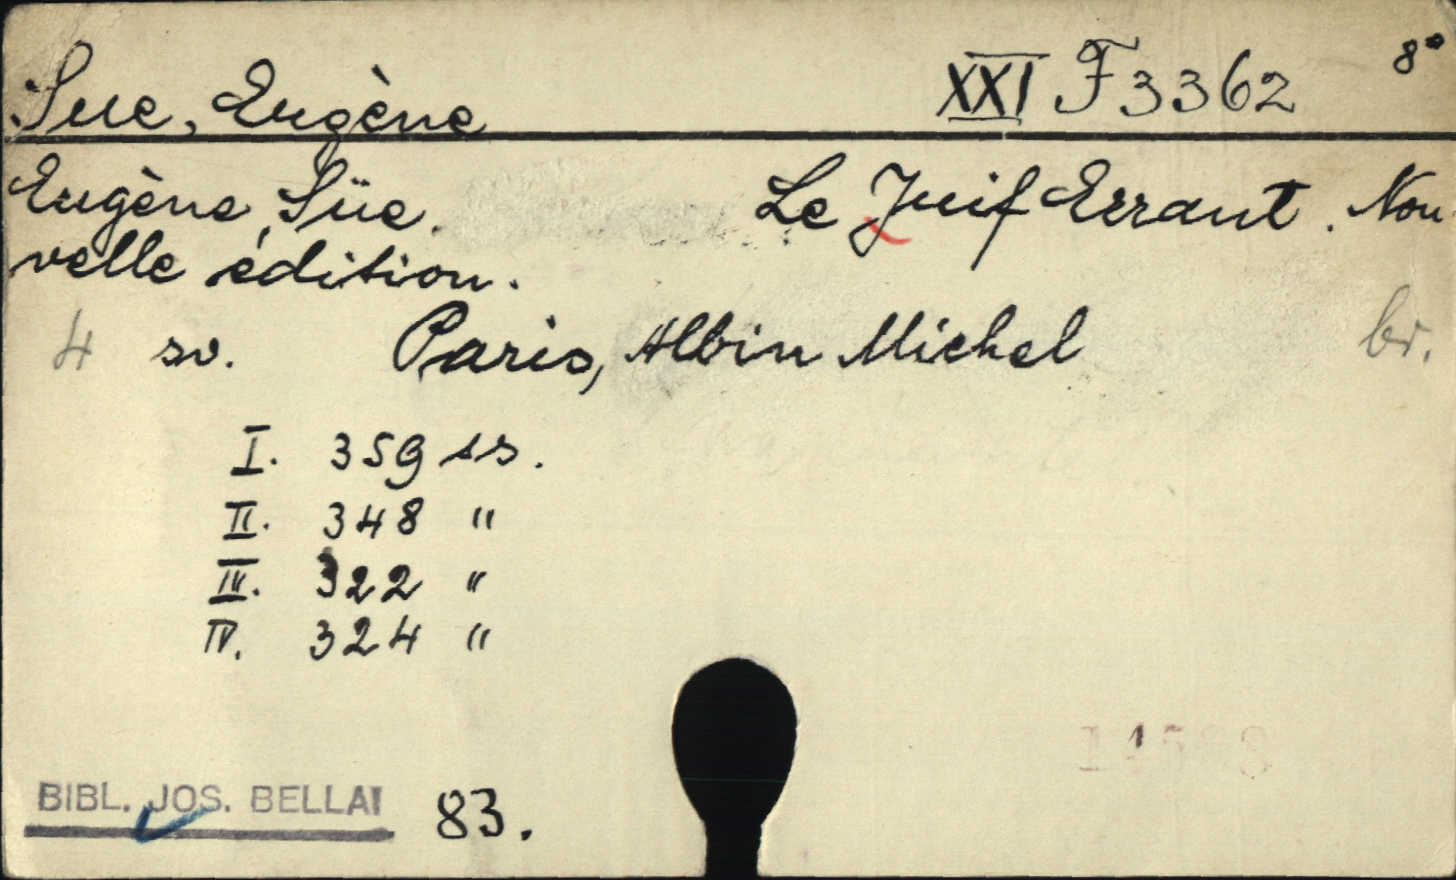 Sue, Eugène XXI F 3362 8°
Eugène Süe. Le Juif Errant. Nou
velle édition.
4 sv. Paris, Albin Michel br.
I. 359 ss.
II. 348 "
III. 322 "
IV. 324 "
BIBL. JOS. BELLAI 83.